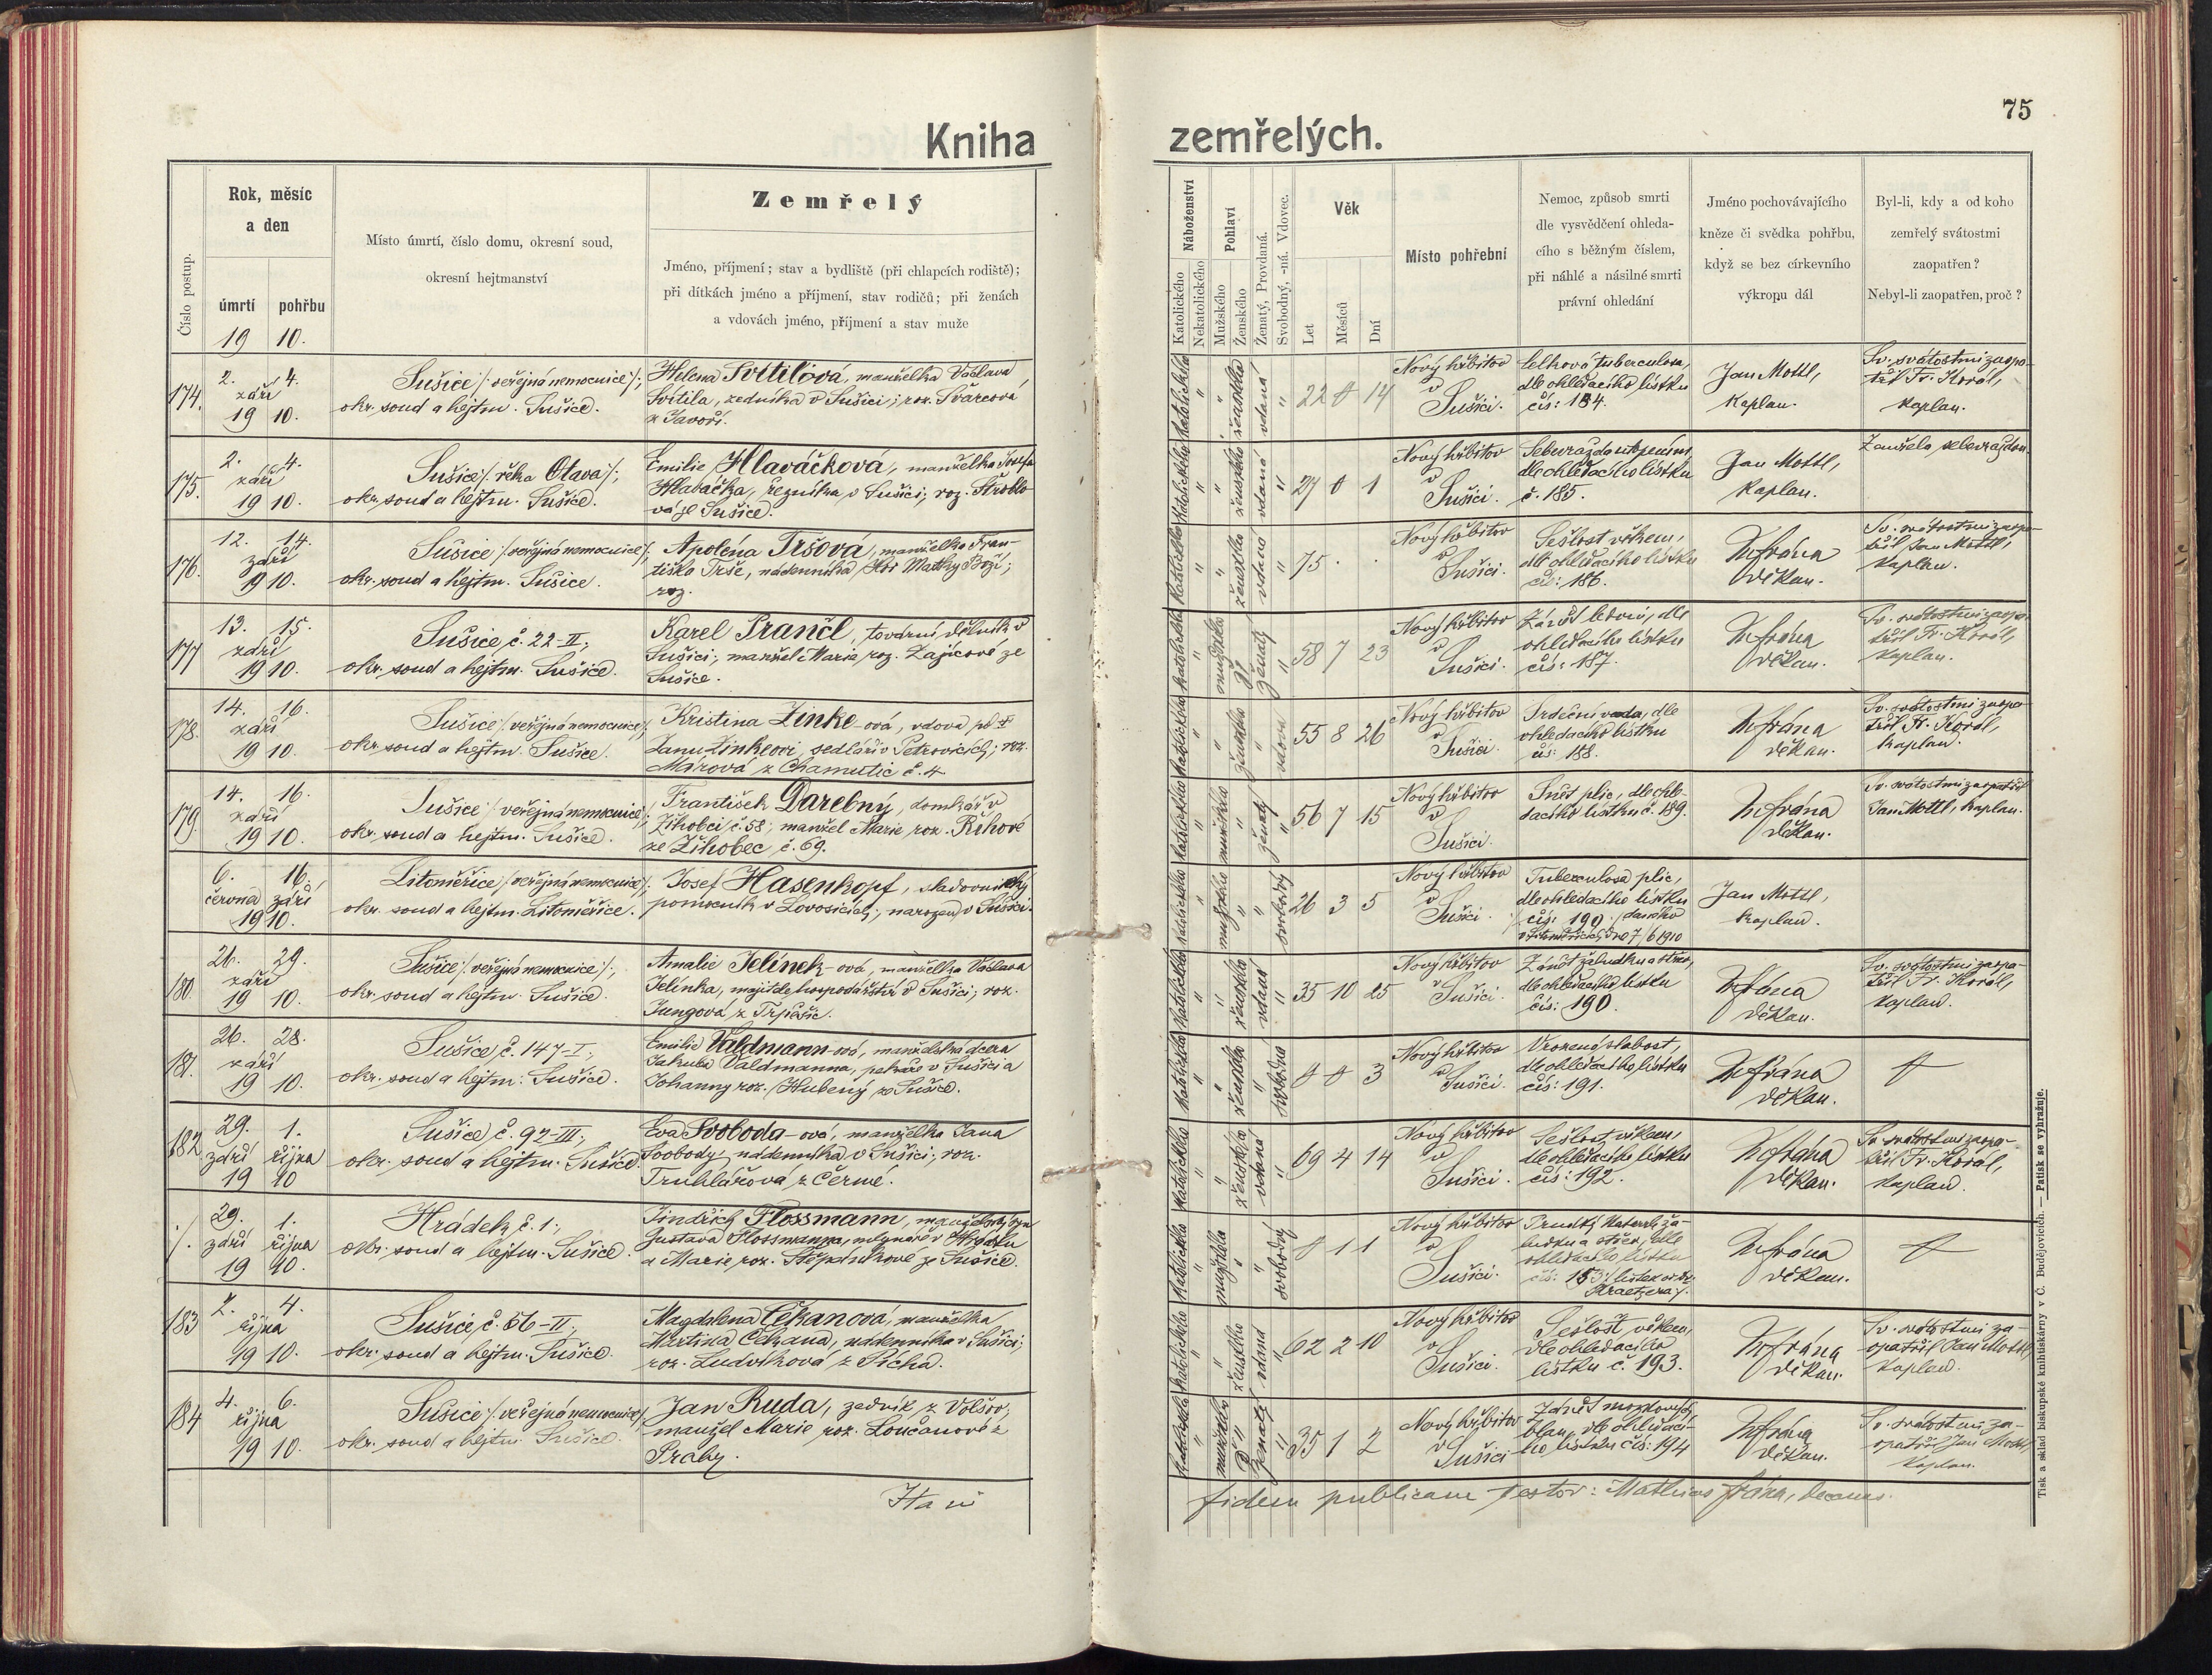 75
Kniha zemřelých.
Číslo postup.
Rok, měsíc
a den
úmrtí
pohřbu
19 10.
Místo úmrtí, číslo domu, okresní soud,
okresní hejtmanství
Zemřelý
Jméno, příjmení; stav a bydliště (při chlapcích rodiště);
při dítkách jméno a příjmení, stav rodičů; při ženách
a vdovách jméno, příjmení a stav muže
Náboženství
Katolického
Nekatolického
Pohlaví
Mužského
Ženského
Ženatý, Provdaná.
Svobodný, -ná. Vdovec.
Věk
Let
Měsíců
Dní
Místo pohřební
Nemoc, způsob smrti
dle vysvědčení ohleda-
cího s běžným číslem,
při náhlé a násilné smrti
právní ohledání
Jméno pochovávajícího
kněze či svědka pohřbu,
když se bez církevního
výkropu dál
Byl-li, kdy a od koho
zemřelý svátostmi
zaopatřen?
Nebyl-li zaopatřen, proč?
174.
2. 4.
září
19 10.
Sušice /: veřejná nemocnice :/;
okr. soud a hejtm. Sušice.
Helena Svitilová, manželka Václava
Svitila, zedníka v Sušici; roz. Švarcová
z Javoří.
katolického
ženského
vdaná
22 0 14
Nový hřbitov
v
Sušici.
dle ohledacího lístku
čís: 184.
Jan Mottl,
kaplan.
Sv. svátostmi zaopa-
třil Fr. Korál,
kaplan.
175.
2. 4.
září
19 10.
Sušice /: řeka Otava :/;
okr. soud a hejtm. Sušice.
Emilie Hlaváčková, manželka Josefa
Hlaváčka, řezníka v Sušici; roz. Štroblo-
vá ze Sušice.
katolického
ženského
vdaná
27 0 1
Nový hřbitov
v
Sušici.
Sebevražda utopením,
dle ohledacího lístku
č. 185.
Jan Mottl,
kaplan.
Zemřela sebevraždou.
176.
12. 14.
září
19 10.
Sušice /: veřejná nemocnice :/;
okr. soud a hejtm. Sušice.
Apoléna Tršová, manželka Fran-
tiška Trše, nádenníka, Hor Matky Boží;
roz.
katolického
ženského
vdaná
75 . .
Nový hřbitov
v
Sušici.
Sešlost věkem,
dle ohledacího lístku
čís: 186.
M. Frána
děkan.
Sv. svátostmi zaopa-
třil Jan Mottl,
kaplan.
177
13. 15.
září
19 10.
Sušice, č. 22-II;
okr. soud a hejtm. Sušice.
Karel Prančl, tovární dělník v
Sušici; manžel Marie roz. Zajícové ze
Sušice.
katolického
mužského
ženatý
58 7 23
Nový hřbitov
v
Sušici.
Zánět ledvin, dle
ohledacího lístku
čís: 187.
M. Frána
děkan.
Sv. svátostmi zaopa-
třil Fr. Korál,
kaplan.
178.
14. 16.
září
19 10.
Sušice /: veřejná nemocnice :/;
okr. soud a hejtm. Sušice.
Kristina Zinke-ová, vdova po †
Janu Zinkeovi, sedláři v Petrovicích; roz.
Márová z Chamutic č. 4
katolického
ženského
vdova
55 8 26
Nový hřbitov
v
Sušici.
Srdeční vada, dle
ohledacího lístku
čís: 188.
M. Frána
děkan.
Sv. svátostmi zaopa-
třil Fr. Korál,
kaplan.
179.
14. 16.
září
19 10.
Sušice /: veřejná nemocnice :/;
okr. soud a hejtm. Sušice.
František Darebný, domkář v
Žihobci č. 58; manžel Marie roz. Říhové
ze Žihobec, č. 69.
katolického
mužského
ženatý
56 7 15
Nový hřbitov
v
Sušici.
Sněť plic, dle ohle-
dacího lístku č. 189.
M. Frána
děkan.
Sv. svátostmi zaopatřil
Jan Mottl, kaplan.
6. 16.
června září
19 10.
Litoměřice /: veřejná nemocnice :/;
okr. soud a hejtm. Litoměřice.
Josef Hasenkopf, sladovnický
pomocník v Lovosicích; narozen v Sušici.
katolického
mužského
svobodný
26 3 5
Nový hřbitov
v
Sušici.
Tuberculosa plic,
dle ohledacího lístku
čís: 190 /: daného
v Litoměřicích dne 7/6 1910
Jan Mottl,
kaplan.
180.
26. 29.
září
19 10.
Sušice /: veřejná nemocnice :/;
okr. soud a hejtm. Sušice.
Amalie Jelínek-ová, manželka Václava
Jelínka, majitele hospodářství v Sušici; roz.
Jungová z Trpěšic.
katolického
ženského
vdaná
35 10 25
Nový hřbitov
v
Sušici.
Zánět žaludku a střev,
dle ohledacího lístku
čís: 190.
M. Frána
děkan.
Sv. svátostmi zaopa-
třil Fr. Korál,
kaplan.
181.
26. 28.
září
19 10.
Sušice, č. 147-I;
okr. soud a hejtm. Sušice.
Emilie Valdmann-ová, manželská dcera
Jakuba Valdmanna, pekaře v Sušici a
Johanny roz. Hubený ze Sušice.
katolického
ženského
svobodná
0 0 3
Nový hřbitov
v
Sušici.
Vrozená slabost,
dle ohledacího lístku
čís: 191.
M. Frána
děkan.
0
182
29. 1.
září října
19 10
Sušice, č. 92-III;
okr. soud a hejtm. Sušice.
Eva Svoboda-ová, manželka Jana
Svobody, nádenníka v Sušici; roz.
Truhlářová z Čermé.
katolického
ženského
vdaná
69 4 14
Nový hřbitov
v
Sušici.
Sešlost věkem,
dle ohledacího lístku
čís: 192.
M. Frána
děkan.
Sv. svátostmi zaopa-
třil Fr. Korál,
kaplan.
./.
29. 1.
září října
19 10.
Hrádek, č. 1;
okr. soud a hejtm. Sušice.
Jindřich Flossmann, manželský syn
Gustava Flossmanna, mlynáře v Hrádku
a Marie, roz. Štěpánkové ze Sušice.
katolického
mužského
svobodný
0 1 1
Nový hřbitov
v
Sušici.
Prudký katarrh ža-
ludku a střev, dle
ohledacího lístku
čís: 153
M. Frána
děkan.
0
183
2. 4.
října
19 10.
Sušice, č. 56-II;
okr. soud a hejtm. Sušice.
Magdalena Čekanová, manželka
Martina Čekana, nádenníka v Sušici;
roz. Ludvíková z Píchá.
katolického
ženského
vdaná
62 2 10
Nový hřbitov
v
Sušici.
Sešlost věkem,
dle ohledacího
lístku č. 193.
M. Frána
děkan.
Sv. svátostmi za-
opatřil Jan Mottl,
kaplan.
184
4. 6.
října
19 10.
Sušice /: veřejná nemocnice :/;
okr. soud a hejtm. Sušice.
Jan Ruda, zedník z Volšov;
manžel Marie roz. Loučanové z
Prahy.
katolického
mužského
ženatý
35 1 2
Nový hřbitov
v
Sušici
Zánět mozkových
blan, dle ohledací-
ho lístku čís: 194
M. Frána
děkan.
Sv. svátostmi za-
opatřil Jan Mottl,
kaplan.
Ita in
fidem publicam testor: Mathias Frána, decanus.
Tisk a sklad biskupské knihtiskárny v Č. Budějovicích. — Patisk se vyhražuje.